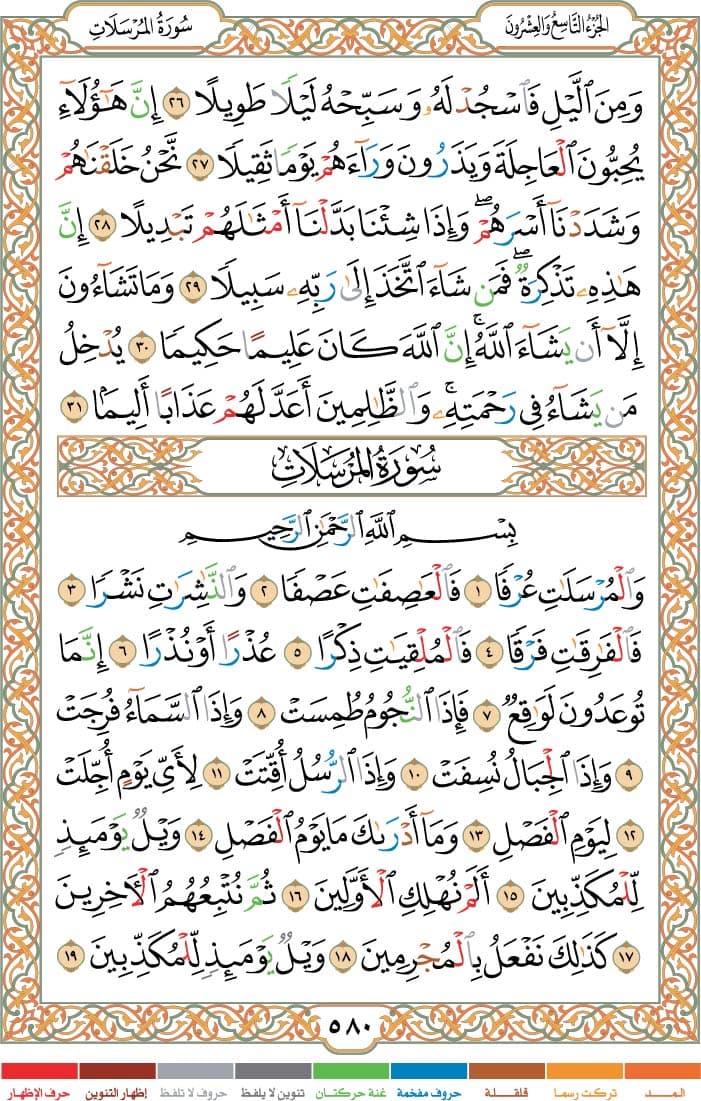 الجزء التاسع والعشرون
سورة المرسلات
وَمِنَ ٱلَّيْلِ فَٱسْجُدْ لَهُۥ وَسَبِّحْهُ لَيْلًا طَوِيلًا ٢٦ إِنَّ هَٰٓؤُلَآءِ
يُحِبُّونَ ٱلْعَاجِلَةَ وَيَذَرُونَ وَرَآءَهُمْ يَوْمًا ثَقِيلًا ٢٧ نَّحْنُ خَلَقْنَٰهُمْ
وَشَدَدْنَآ أَسْرَهُمْ ۖ وَإِذَا شِئْنَا بَدَّلْنَآ أَمْثَٰلَهُمْ تَبْدِيلًا ٢٨ إِنَّ
هَٰذِهِۦ تَذْكِرَةٌ ۖ فَمَن شَآءَ ٱتَّخَذَ إِلَىٰ رَبِّهِۦ سَبِيلًا ٢٩ وَمَا تَشَآءُونَ
إِلَّآ أَن يَشَآءَ ٱللَّهُ ۚ إِنَّ ٱللَّهَ كَانَ عَلِيمًا حَكِيمًا ٣٠ يُدْخِلُ
مَن يَشَآءُ فِى رَحْمَتِهِۦ ۚ وَٱلظَّٰلِمِينَ أَعَدَّ لَهُمْ عَذَابًا أَلِيمًۢا ٣١
سُورَةُ المُرْسَلَاتِ
بِسْمِ ٱللَّهِ ٱلرَّحْمَٰنِ ٱلرَّحِيمِ
وَٱلْمُرْسَلَٰتِ عُرْفًا ١ فَٱلْعَٰصِفَٰتِ عَصْفًا ٢ وَٱلنَّٰشِرَٰتِ نَشْرًا ٣
فَٱلْفَٰرِقَٰتِ فَرْقًا ٤ فَٱلْمُلْقِيَٰتِ ذِكْرًا ٥ عُذْرًا أَوْ نُذْرًا ٦ إِنَّمَا
تُوعَدُونَ لَوَٰقِعٌ ٧ فَإِذَا ٱلنُّجُومُ طُمِسَتْ ٨ وَإِذَا ٱلسَّمَآءُ فُرِجَتْ
٩ وَإِذَا ٱلْجِبَالُ نُسِفَتْ ١٠ وَإِذَا ٱلرُّسُلُ أُقِّتَتْ ١١ لِأَىِّ يَوْمٍ أُجِّلَتْ
١٢ لِيَوْمِ ٱلْفَصْلِ ١٣ وَمَآ أَدْرَىٰكَ مَا يَوْمُ ٱلْفَصْلِ ١٤ وَيْلٌ يَوْمَئِذٍ
لِّلْمُكَذِّبِينَ ١٥ أَلَمْ نُهْلِكِ ٱلْأَوَّلِينَ ١٦ ثُمَّ نُتْبِعُهُمُ ٱلْءَاخِرِينَ
١٧ كَذَٰلِكَ نَفْعَلُ بِٱلْمُجْرِمِينَ ١٨ وَيْلٌ يَوْمَئِذٍ لِّلْمُكَذِّبِينَ ١٩
٥٨٠
المـــد تركت رسما قلقـــلة حروف مفخمة غنة حركتان تنوين لا يلفظ حروف لا تلفظ إظهار التنوين حرف الإظهار